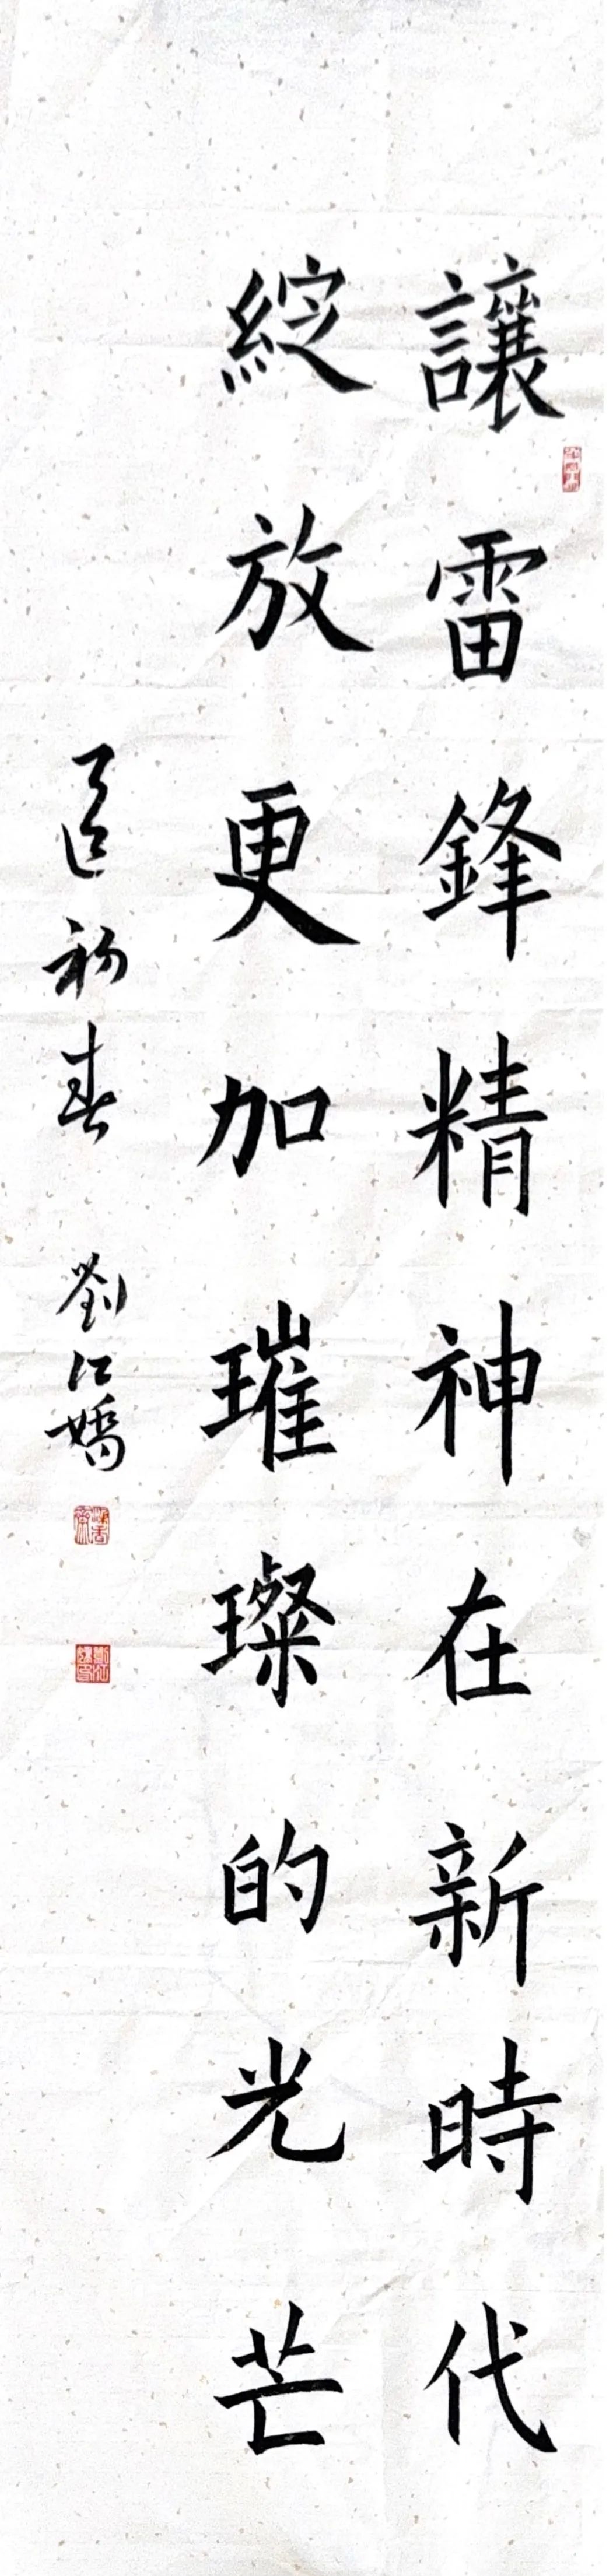 讓雷鋒精神在新時代
綻放更加璀璨的光芒
乙巳初春 劉江嬌